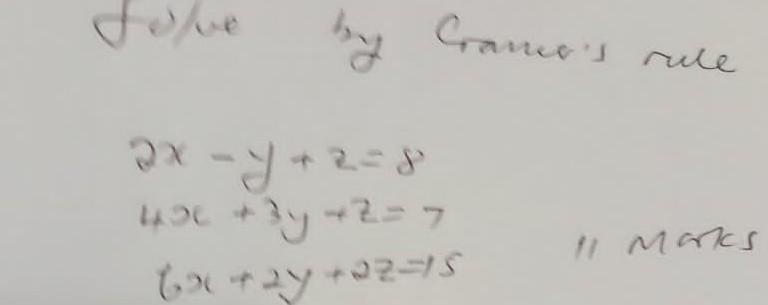 Solve by Cramer's rule
2x - y + z = 8
4x + 3y + z = 7
6x + 2y + 2z = 15
11 Marks